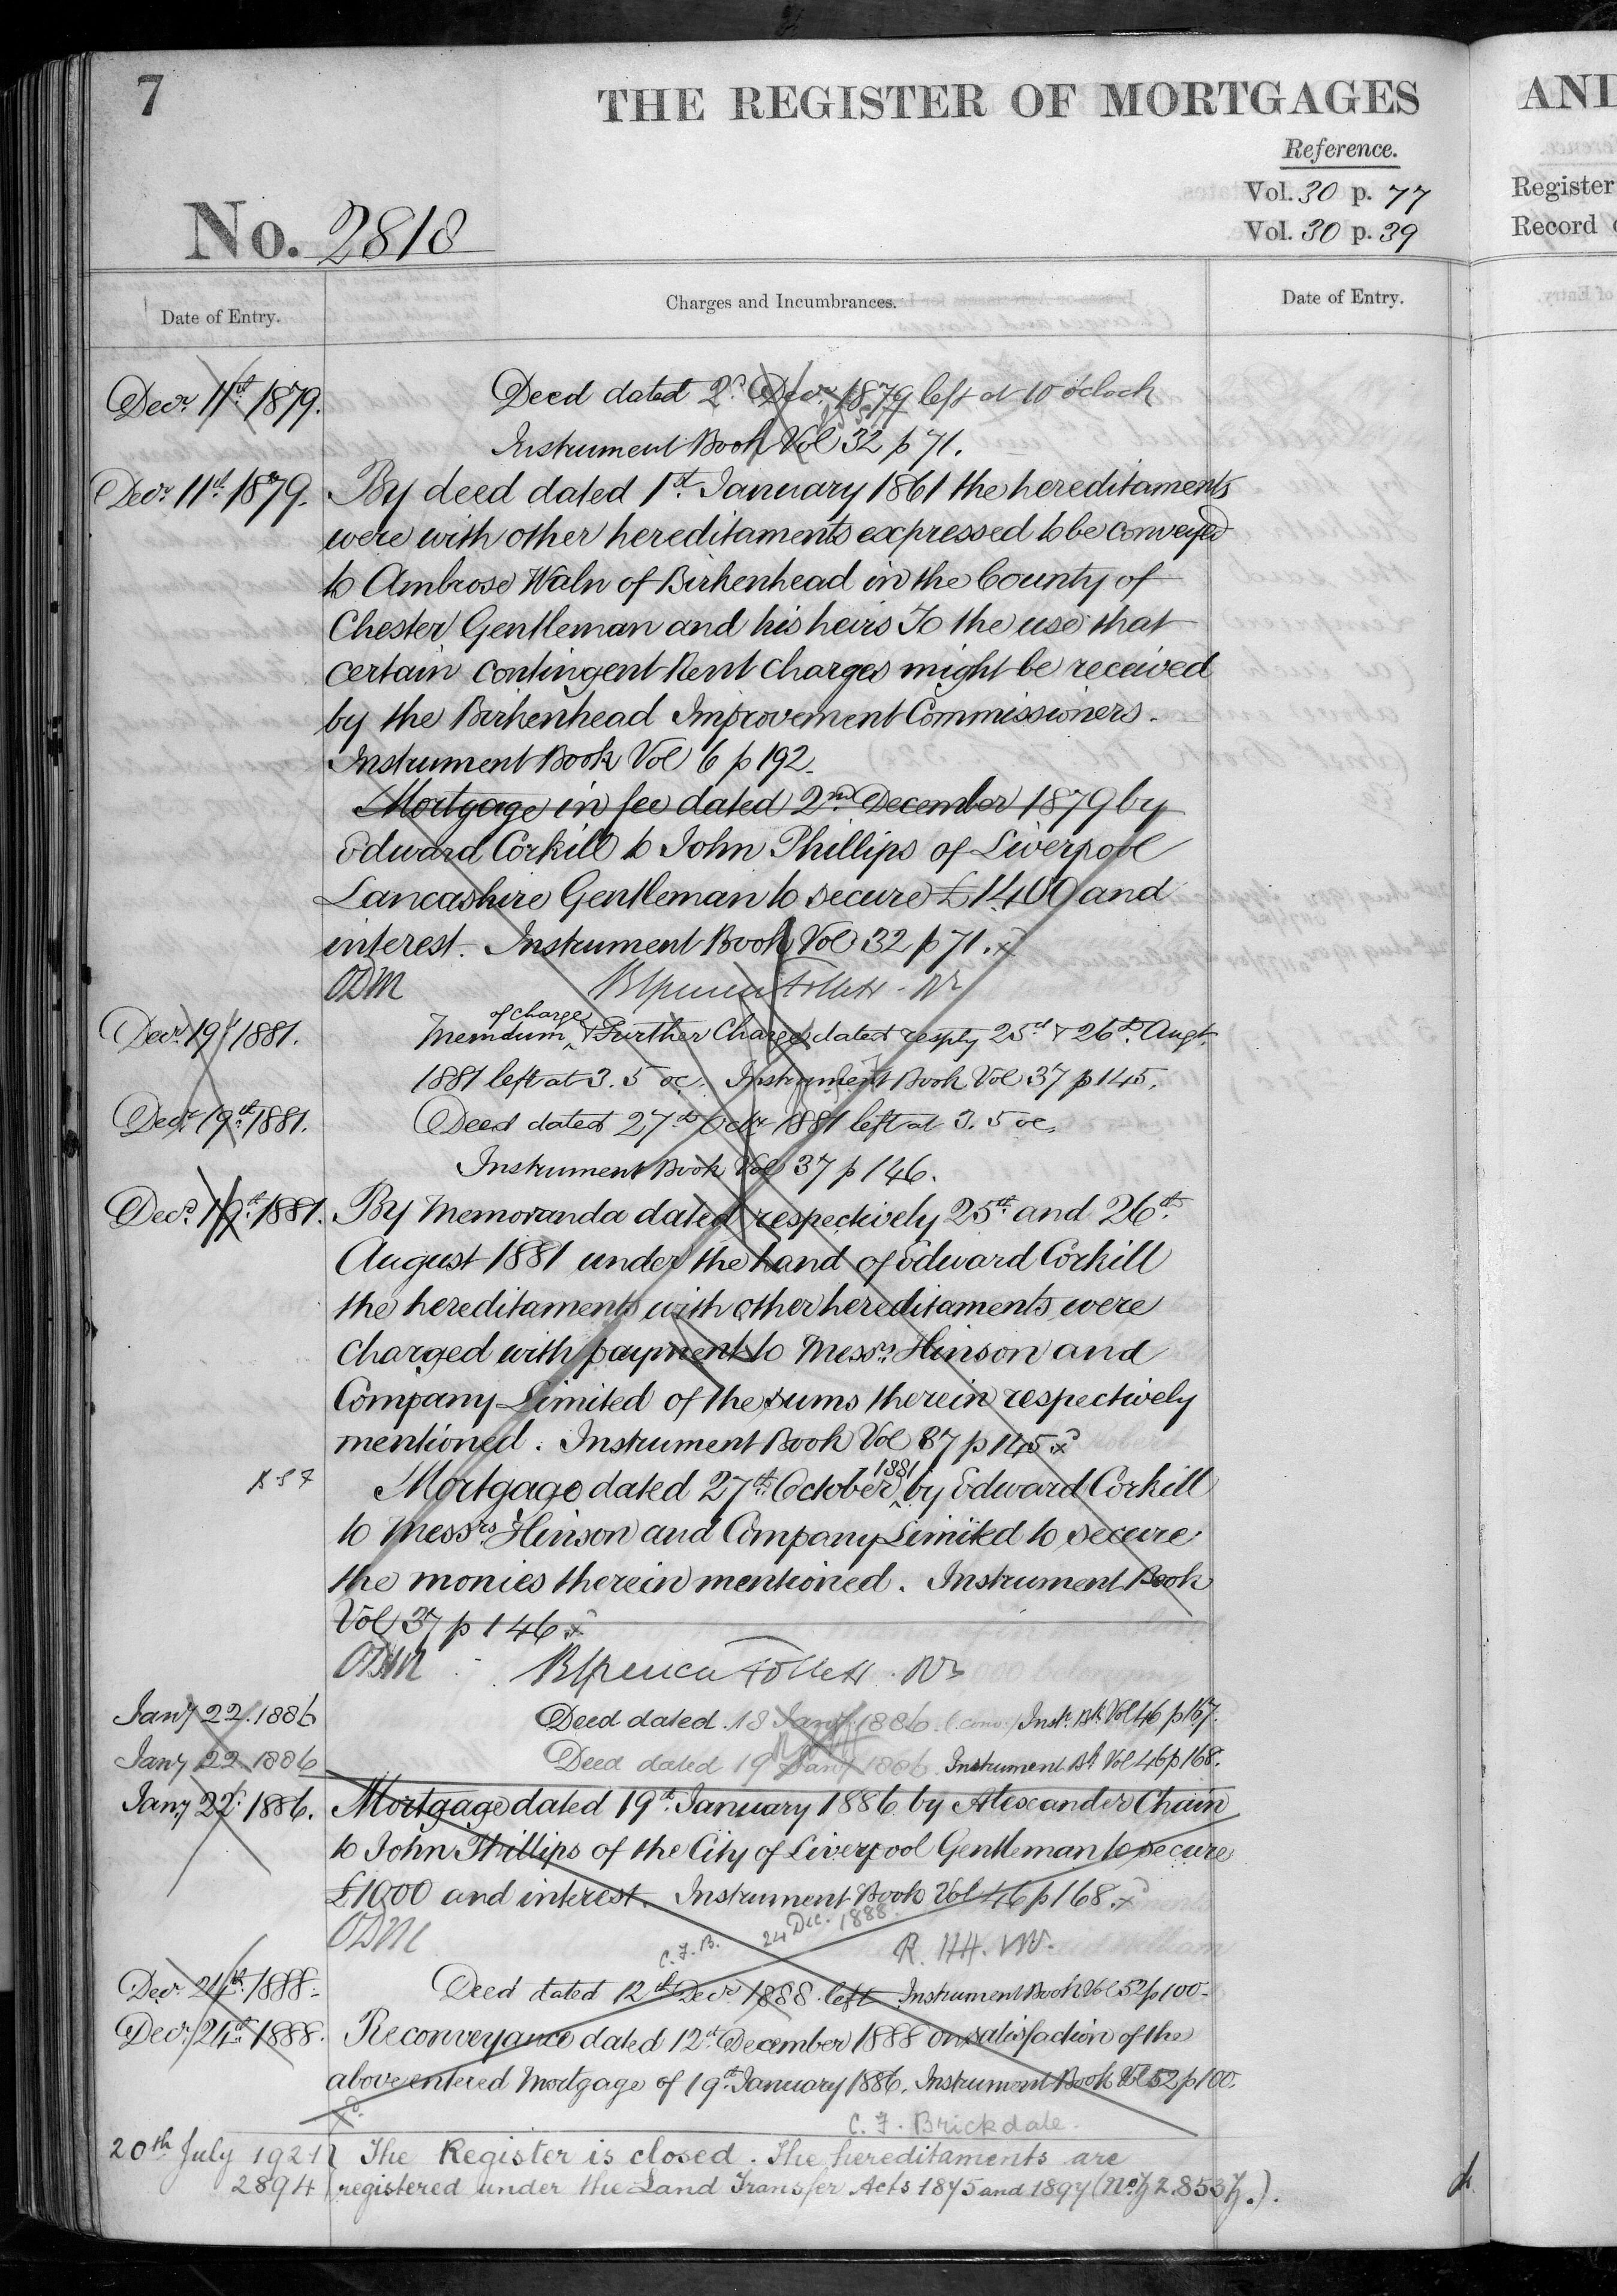 7
THE REGISTER OF MORTGAGES
AND
Reference.
Vol. 30 p. 77
Register
No. 2818
Vol. 30 p. 39
Record
Date of Entry.
Charges and Incumbrances.
Date of Entry.
Decr. 11th 1879.
Deed dated 2d. Decr. 1879 left at 10 o'clock
Instrument Book Vol 32 p 71.
Decr. 11th 1879.
By deed dated 1st. January 1861 the hereditaments
were with other hereditaments expressed to be conveyed
to Ambrose Waln of Birkenhead in the County of
Chester Gentleman and his heirs To the use that
certain contingent Rent Charges might be received
by the Birkenhead Improvement Commissioners.
Instrument Book Vol 6 p 192.
Mortgage in fee dated 2nd December 1879 by
Edward Corkill to John Phillips of Liverpool
Lancashire Gentleman to secure £1400 and
interest. Instrument Book Vol 32 p 71.
Decr. 19th 1881.
of Charge
Memdum & Further Charge dated resply 25th & 26th Augt.
1881 left at 3.5 oc. Instrument Book Vol 37 p 145.
Decr. 19th 1881.
Deed dated 27th Octr 1881 left at 3.5 oc.
Instrument Book Vol 37 p 146.
Decr. 19th 1881.
By Memoranda dated respectively 25th and 26th
August 1881 under the hand of Edward Corkill
the hereditaments with other hereditaments were
charged with payment to Messrs. Hinson and
Company Limited of the sums therein respectively
mentioned. Instrument Book Vol 37 p 145
Mortgage dated 27th October 1881 by Edward Corkill
to Messrs Hinson and Company Limited to secure
the monies therein mentioned. Instrument Book
Vol 37 p 146
Jany 22. 1886
Deed dated 18 Jany. 1886 Instr. Bk. Vol 46 p 167.
Jany 22 1886
Deed dated 19 Jany 1886. Instrument Bk Vol 46 p 168.
Jany 22d. 1886.
Mortgage dated 19th. January 1886 by Alexander Chain
to John Phillips of the City of Liverpool Gentleman to secure
£1000 and interest. Instrument Book Vol 46 p 168.
C. F. B. 24 Dec. 1888.
Decr. 24th 1888.
Deed dated 12th Decr. 1888 left Instrument Book Vol 52 p 100.
Decr. 24th 1888.
Reconveyance dated 12th December 1888 on satisfaction of the
above entered Mortgage of 19th January 1886. Instrument Book Vol 52 p 100.
C. F. Brickdale.
20th July 1921
The Register is closed. The hereditaments are
2894
registered under the Land Transfer Acts 1875 and 1897